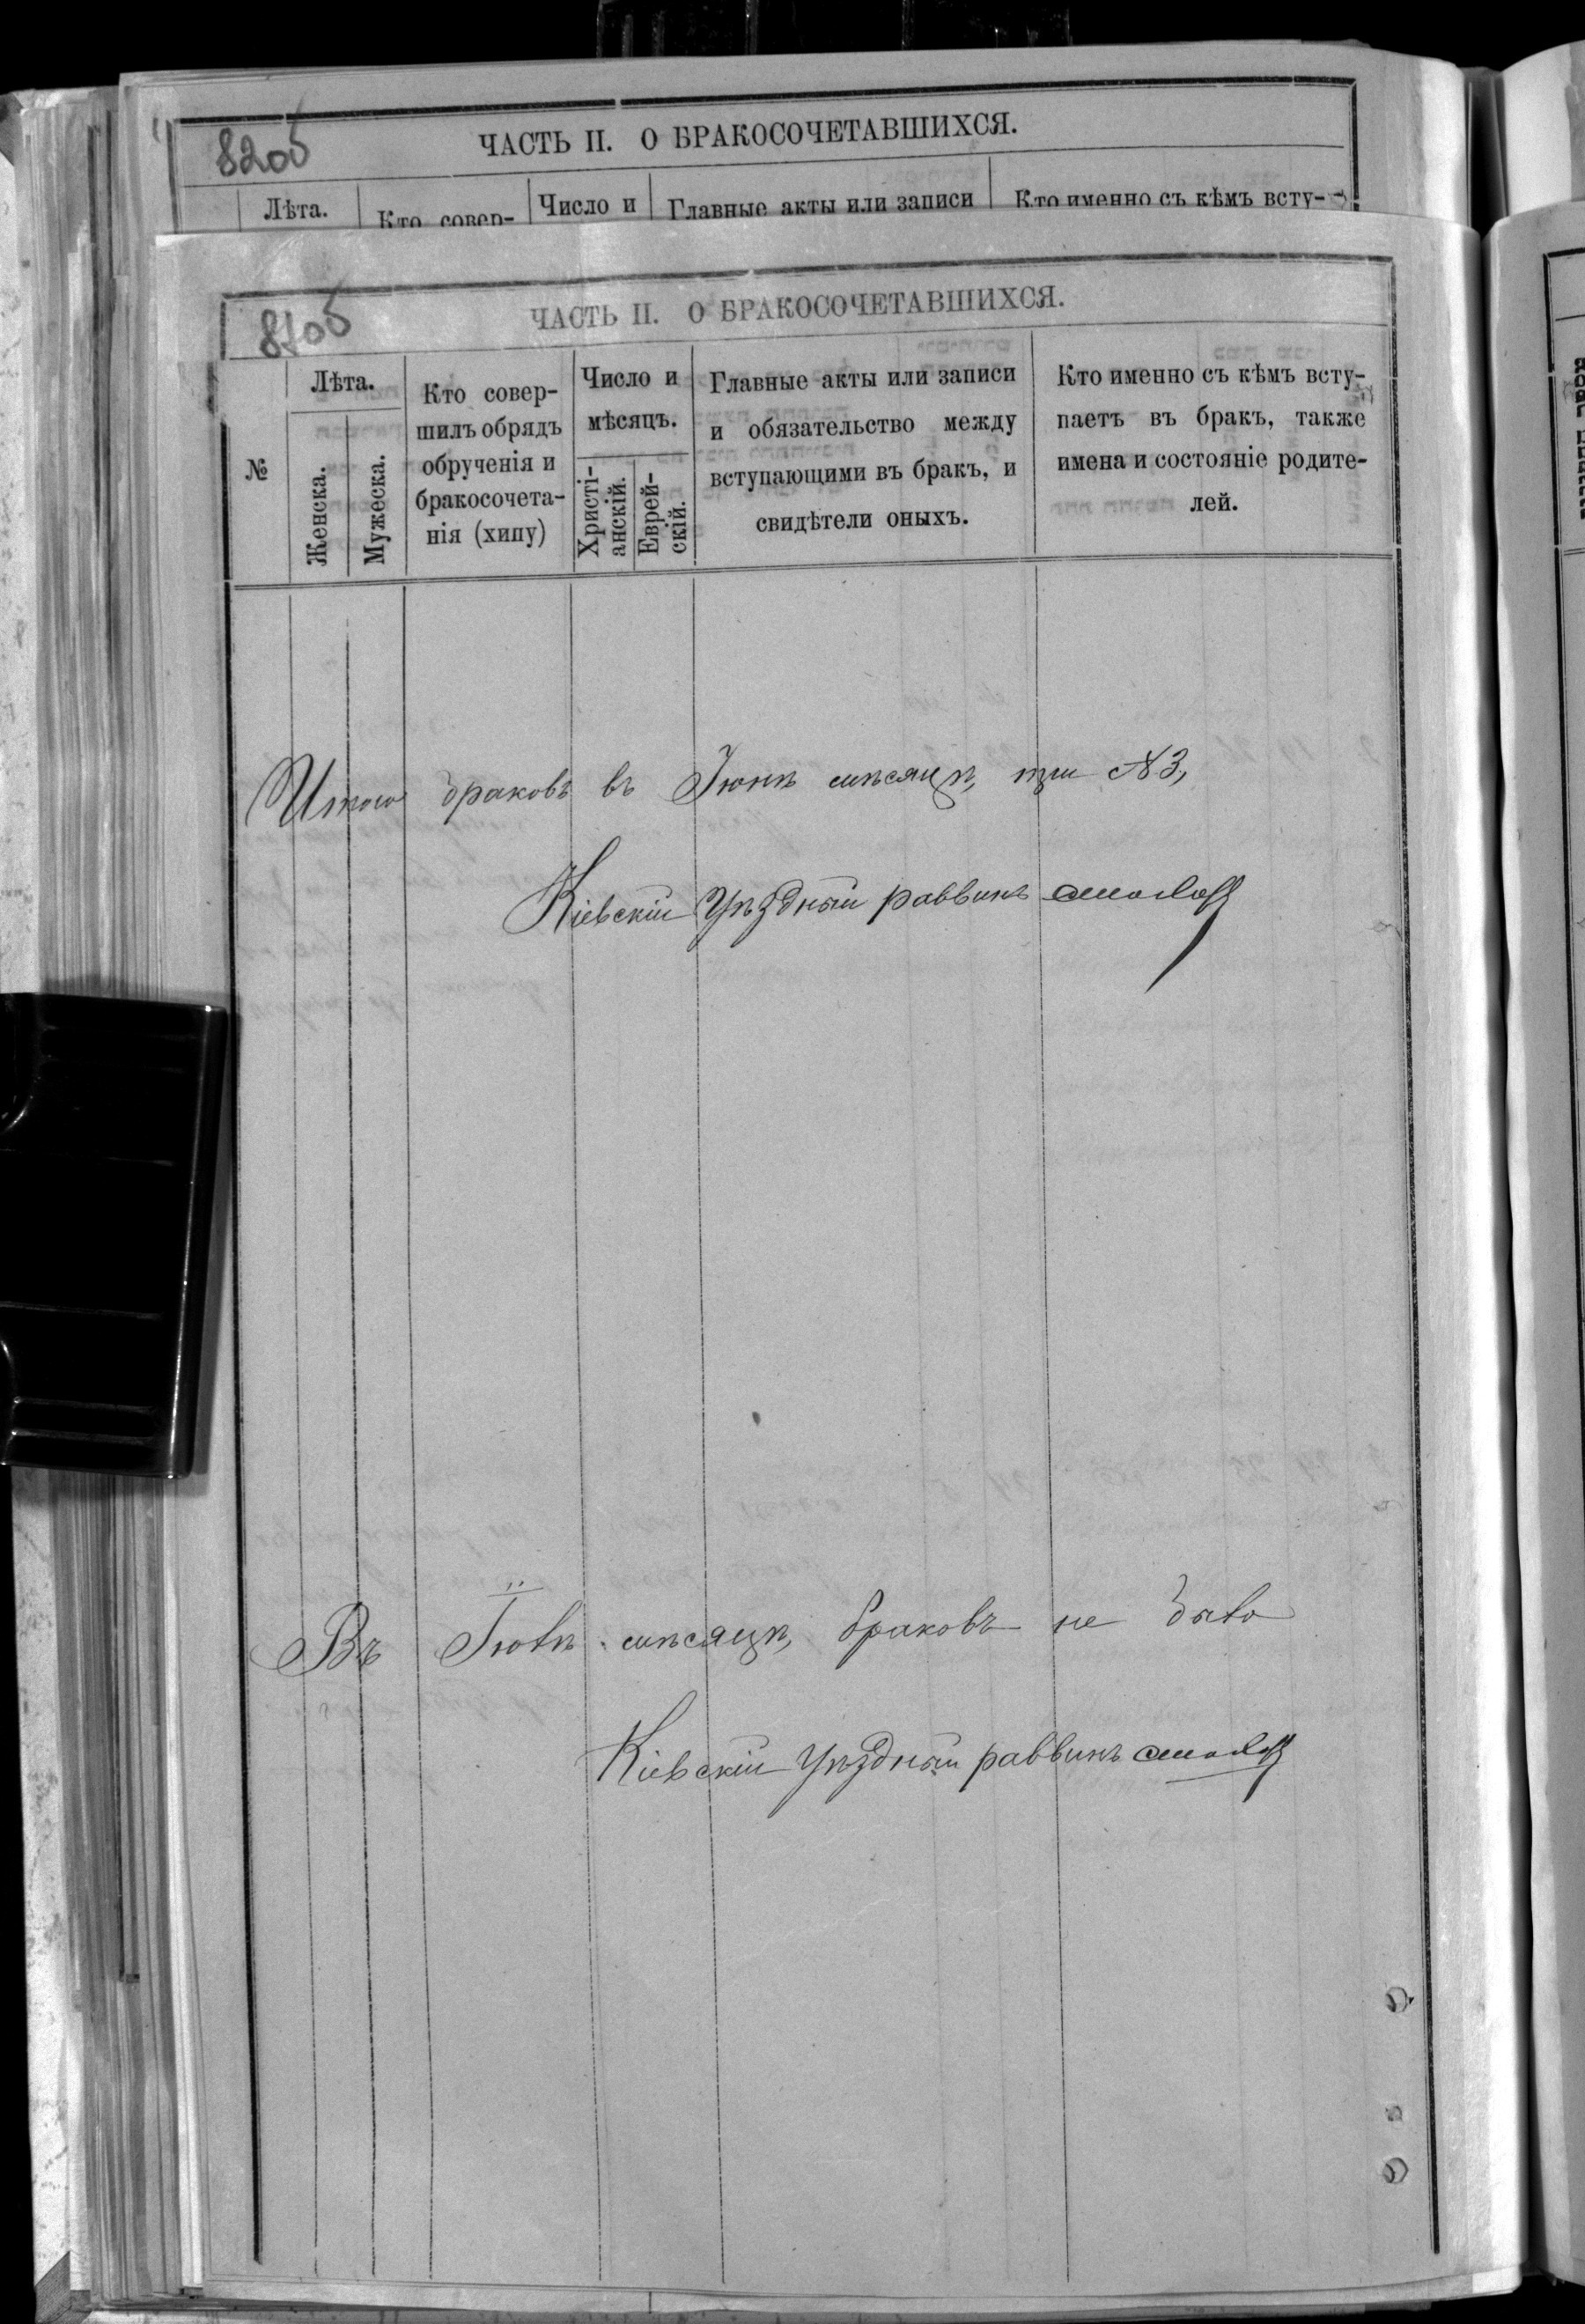 820б
ЧАСТЬ II. О БРАКОСОЧЕТАВШИХСЯ.
Лѣта.
Кто совер-
Число и
Главные акты или записи
Кто именно съ кѣмъ всту-
ЧАСТЬ II. О БРАКОСОЧЕТАВШИХСЯ.
№
Лѣта.
Женска.
Мужеска.
Кто совер-
шилъ обрядъ
обрученія и
бракосочета-
нія (хипу)
Число и
мѣсяцъ.
Христі-
анскій.
Еврей-
скій.
Главные акты или записи
и обязательство между
вступающими въ бракъ, и
свидѣтели оныхъ.
Кто именно съ кѣмъ всту-
паетъ въ бракъ, также
имена и состояніе родите-
лей.
Итого браковъ въ Іюнѣ мѣсяцѣ, три №3,
Кіевскій Уѣздный раввинъ
Въ Іюлѣ мѣсяцѣ, браковъ не было
Кіевскій Уѣздный раввинъ